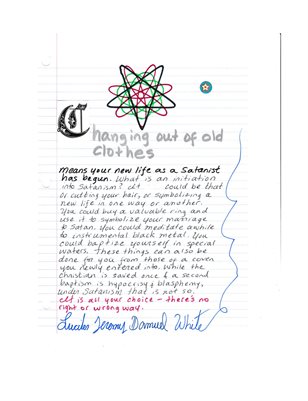 Changing out of old
clothes
means your new life as a Satanist
has begun. What is an initiation
into Satanism? It could be that
or cutting your hair, or symbolizing a
new life in one way or another.
You could buy a valuable ring and
use it to symbolize your marriage
to Satan. You could meditate awhile
to instrumental black metal. You
could baptize yourself in special
waters. These things can also be
done for you from those of a coven
you newly entered into. While the
christian is saved once & a second
baptism is hypocrisy & blasphemy,
under Satanism that is not so.
It is all your choice - there's no
right or wrong way.
Jeremy White